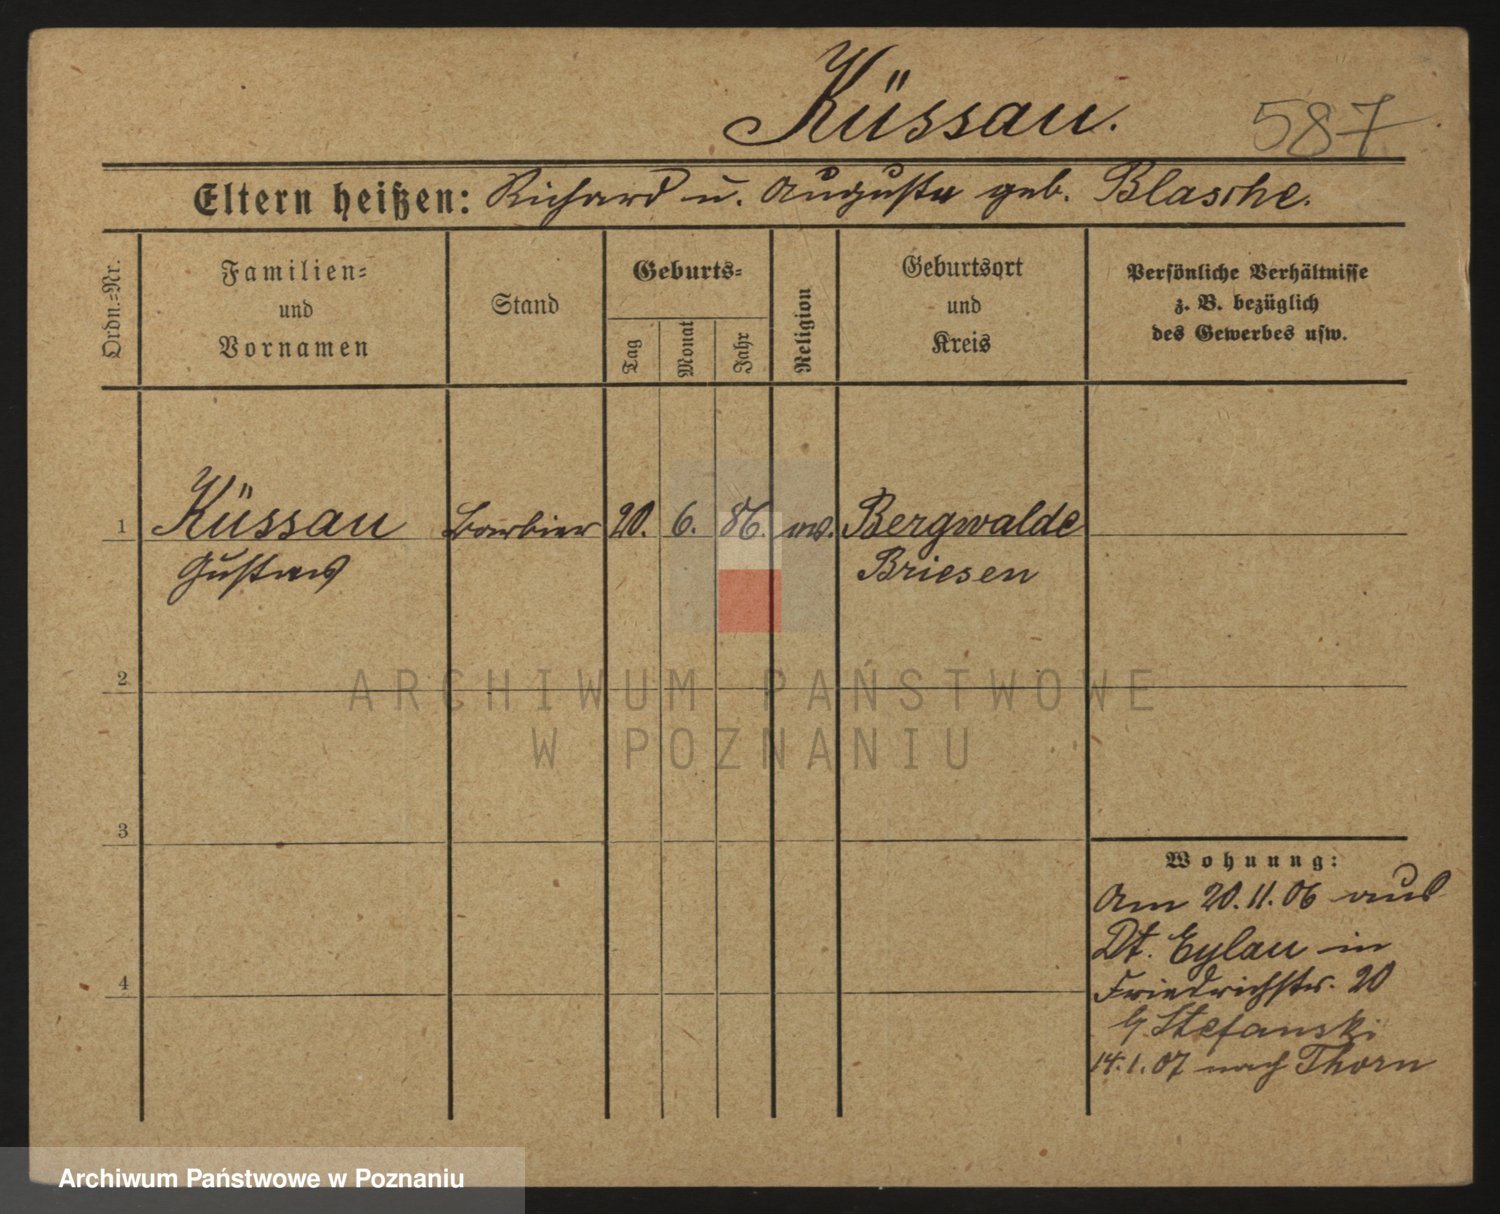 Küssau.
587
Eltern heißen: Richard u. Auguste geb. Blasche.
Ordn.=Nr.
Familien=
und
Vornamen
Stand
Geburts=
Tag
Monat
Jahr
Religion
Geburtsort
und
Kreis
Persönliche Verhältnisse
z. B. bezüglich
des Gewerbes usw.
1 Küssau Barbier 20. 6. 86. ev. Bergwalde
Gustav Briesen
2
ARCHIWUM PAŃSTWOWE
W POZNANIU
3
Wohnung:
Am 20.11.06 aus
Dt. Eylau in
4 Friedrichstr. 20
b/ Stefanski
14.1.07 nach Thorn
Archiwum Państwowe w Poznaniu